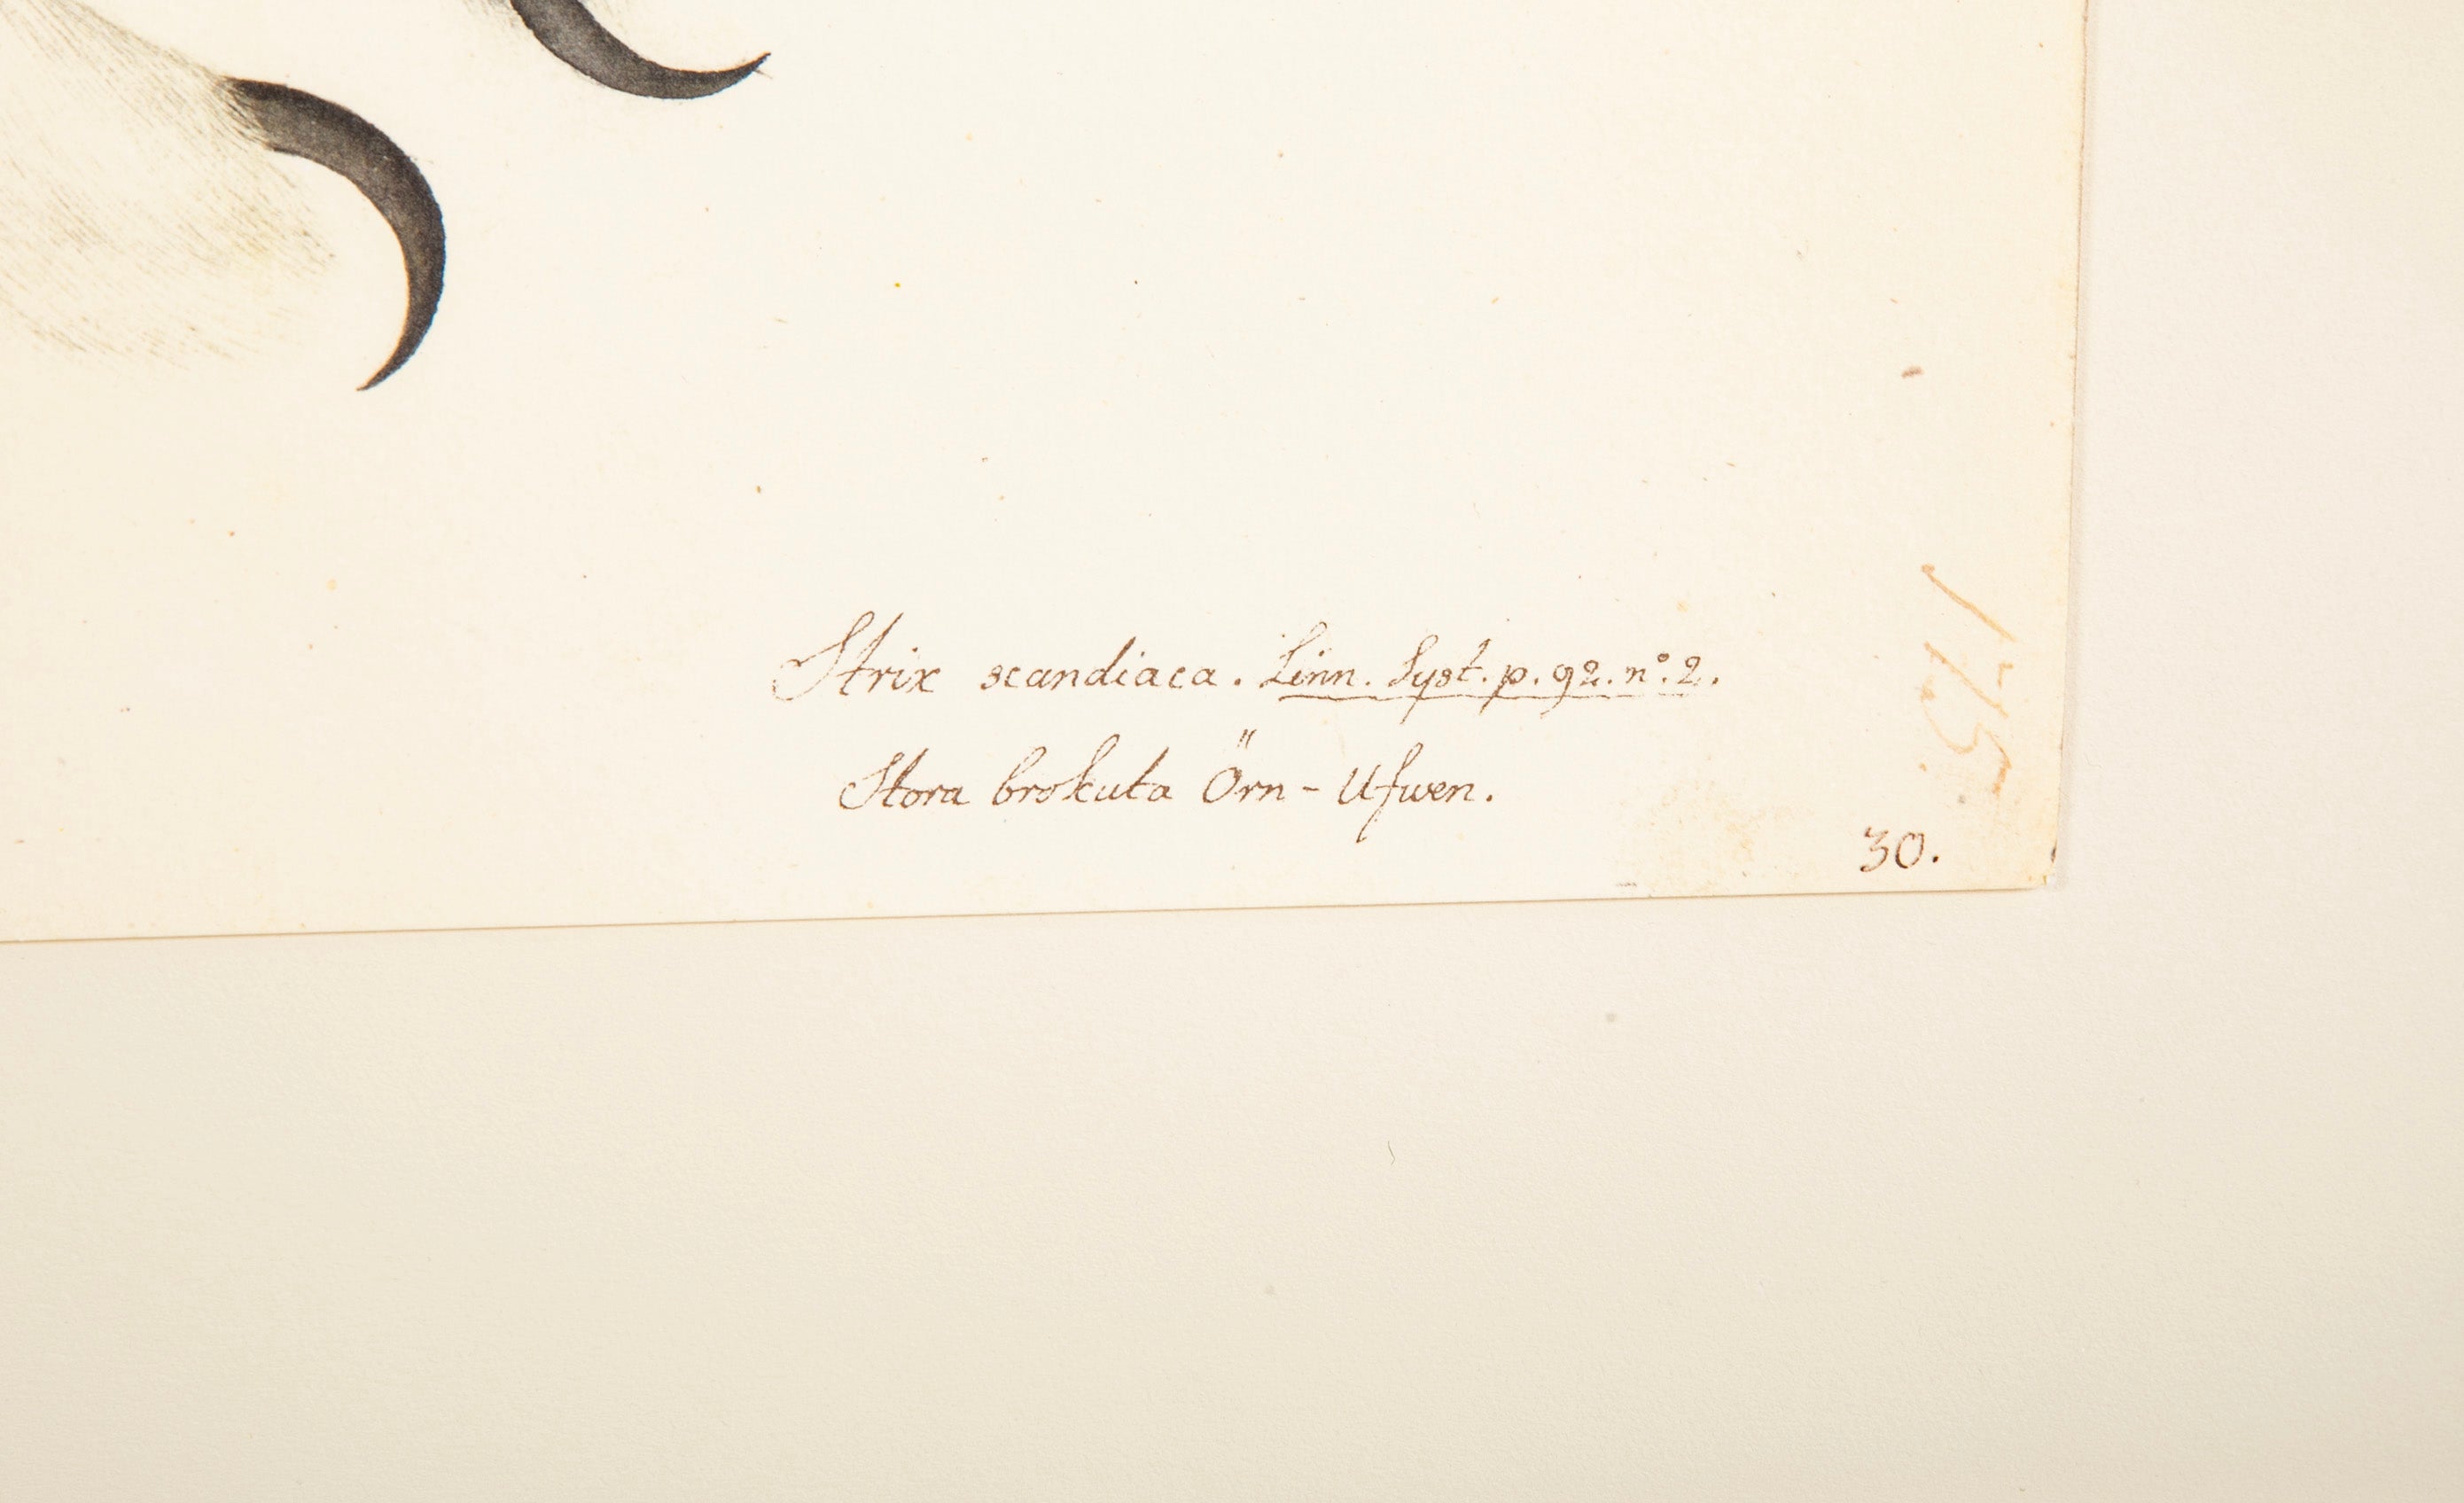 Strix scandiaca. Linn. Syst. p. 92. n°. 2.
Stora brokuta Örn-Ufwen.
30.